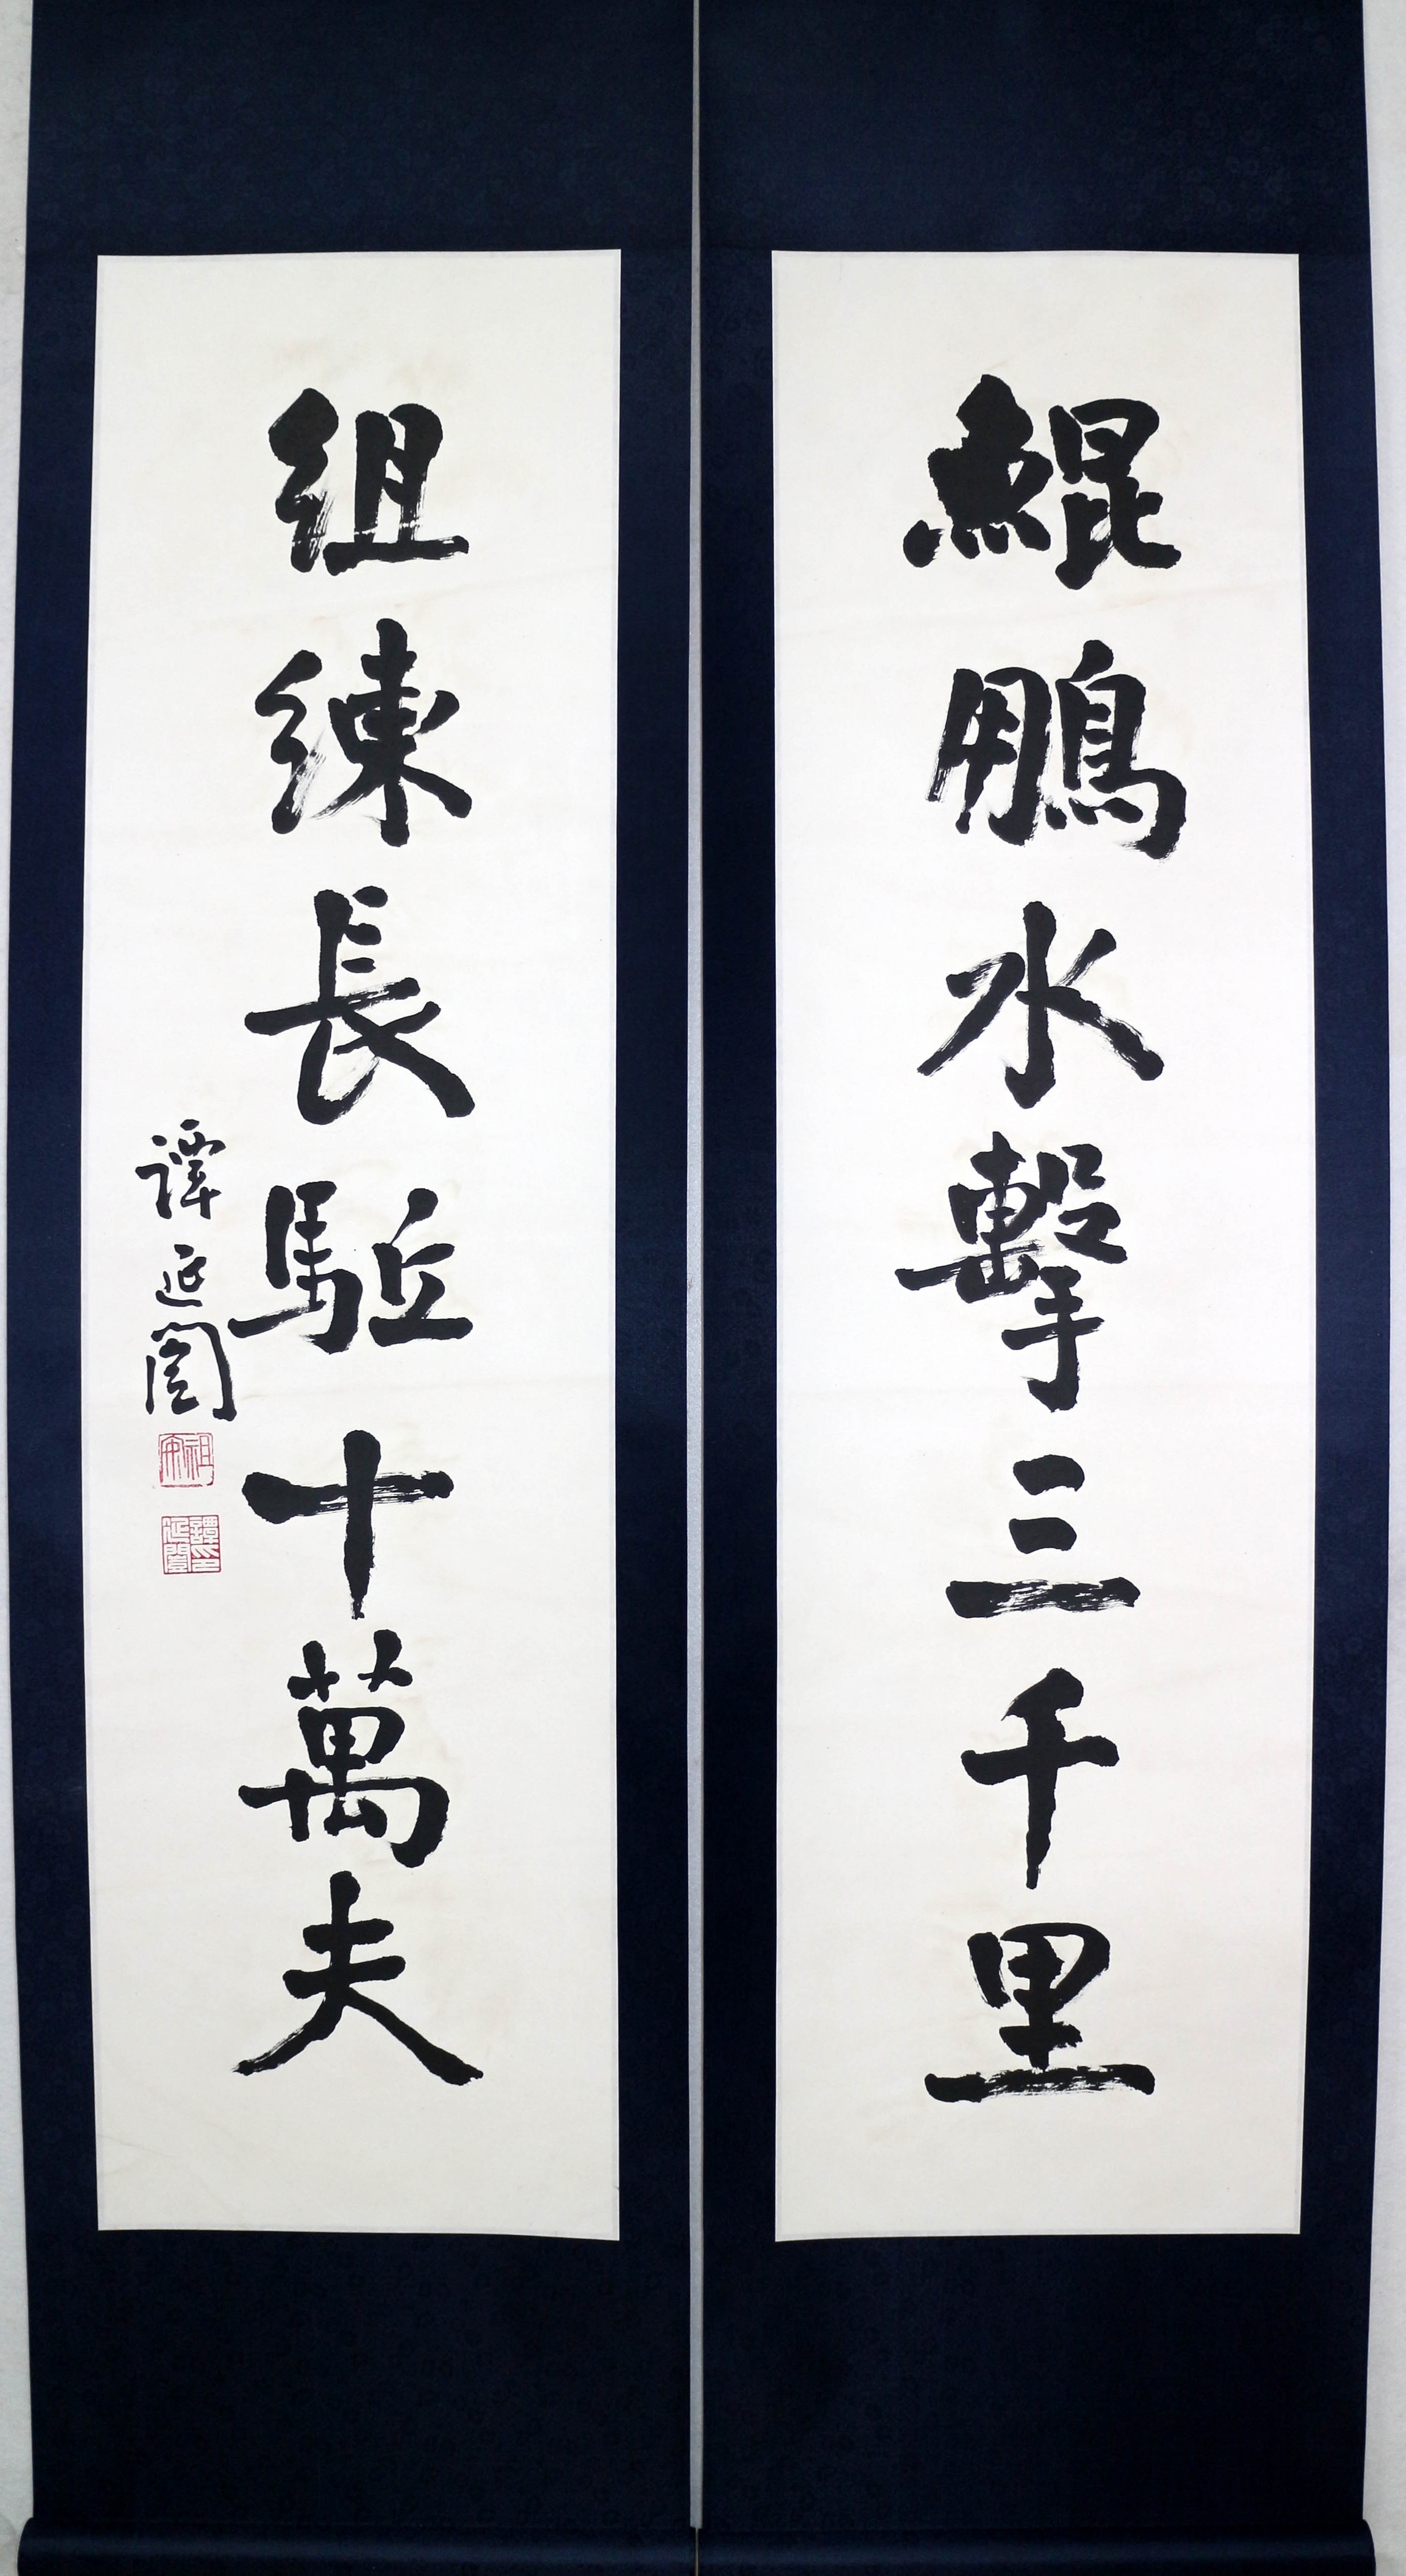 鯤鵬水擊三千里
組練長駈十萬夫
譚延闓
祖安
譚延闓印